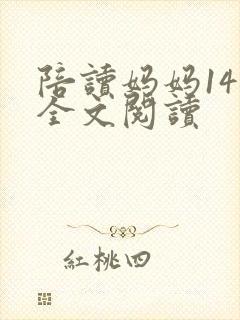 陪讀媽媽14
全文閱讀
紅桃四